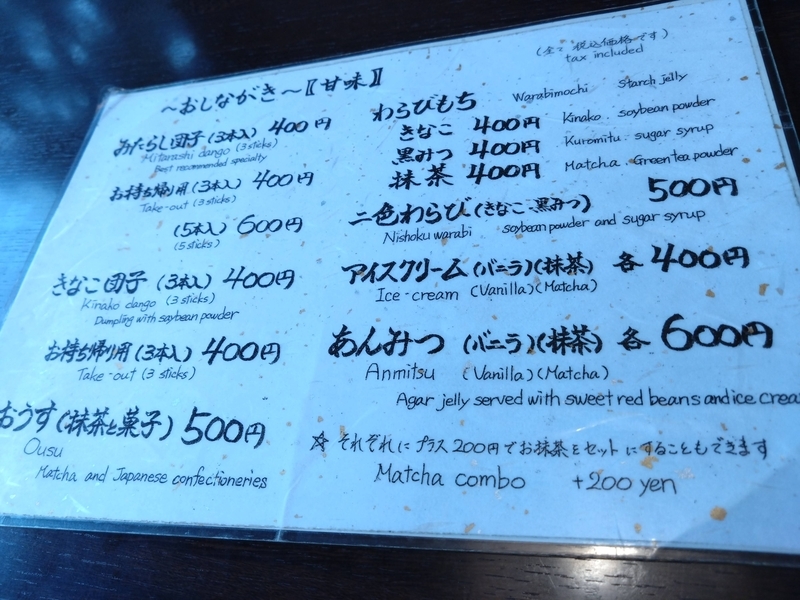 ～おしながき～〖甘味〗
(全て 税込価格です)
tax included
みたらし団子(3本入) 400円
Mitarashi dango (3 sticks)
Best recommended specialty
お持ち帰り用(3本入) 400円
Take-out (3 sticks)
(5本入) 600円
(5 sticks)
きなこ団子 (3本入) 400円
Kinako dango (3 sticks)
Dumpling with soybean powder
お持ち帰り用(3本入) 400円
Take-out (3 sticks)
おうす(抹茶と菓子) 500円
Ousu
Matcha and Japanese confectioneries
わらびもち Warabimochi Starch jelly
きなこ 400円 Kinako. soybean powder
黒みつ 400円 Kuromitu. sugar syrup
抹茶 400円 Matcha. Green tea powder
二色わらび(きなこ、黒みつ) 500円
Nishoku warabi soybean powder and sugar syrup
アイスクリーム(バニラ)(抹茶) 各400円
Ice-cream (Vanilla)(Matcha)
あんみつ (バニラ)(抹茶) 各600円
Anmitsu (Vanilla)(Matcha)
Agar jelly served with sweet red beans and ice crea
☆ それぞれに プラス200円でお抹茶をセットにすることもできます
Matcha combo +200 yen